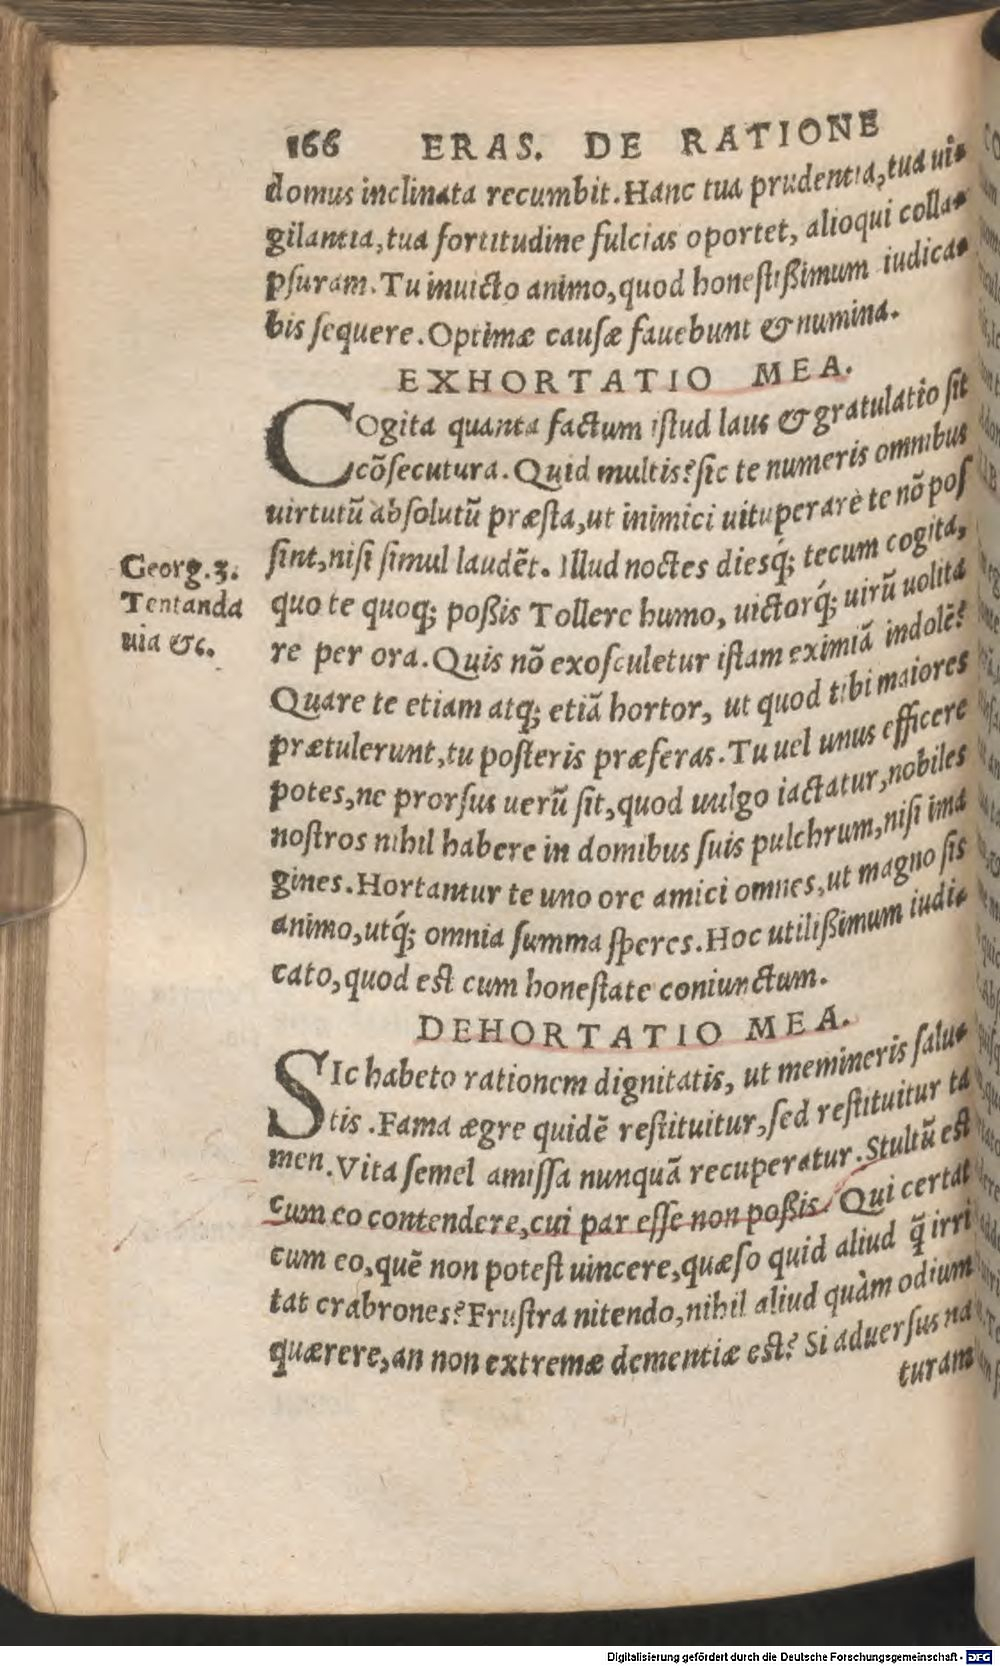 166 ERAS. DE RATIONE
domus inclinata recumbit. Hanc tua prudentia, tua ui-
gilantia, tua fortitudine fulcias oportet, alioqui colla-
psuram. Tu inuicto animo, quod honestißimum iudica-
bis sequere. Optimæ causæ fauebunt & numina.
EXHORTATIO MEA.
COgita quanta factum istud laus & gratulatio sit
cōsecutura. Quid multis? sic te numeris omnibus
uirtutū absolutū præsta, ut inimici uituperare te nō pos
sint, nisi simul laudēt. Illud noctes diesq́; tecum cogita,
quo te quoq; poßis Tollere humo, uictorq́; uirū uolita
re per ora. Quis nō exosculetur istam eximiā indolē?
Quare te etiam atq; etiā hortor, ut quod tibi maiores
prætulerunt, tu posteris præferas. Tu uel unus efficere
potes, ne prorsus uerū sit, quod uulgo iactatur, nobiles
nostros nihil habere in domibus suis pulchrum, nisi ima
gines. Hortantur te uno ore amici omnes, ut magno sis
animo, utq́; omnia summa speres. Hoc utilißimum iudi-
cato, quod est cum honestate coniunctum.
Georg. 3.
Tentanda
uia &c.
DEHORTATIO MEA.
SIc habeto rationem dignitatis, ut memineris salu-
tis. Fama ægre quidē restituitur, sed restituitur ta
men. Vita semel amissa nunquā recuperatur. Stultū est
cum eo contendere, cui par esse non poßis. Qui certat
cum eo, quē non potest uincere, quæso quid aliud q̄ irri
tat crabrones? Frustra nitendo, nihil aliud quàm odium
quærere, an non extremæ dementiæ est? Si aduersus na
turam
Digitalisierung gefördert durch die Deutsche Forschungsgemeinschaft - DFG